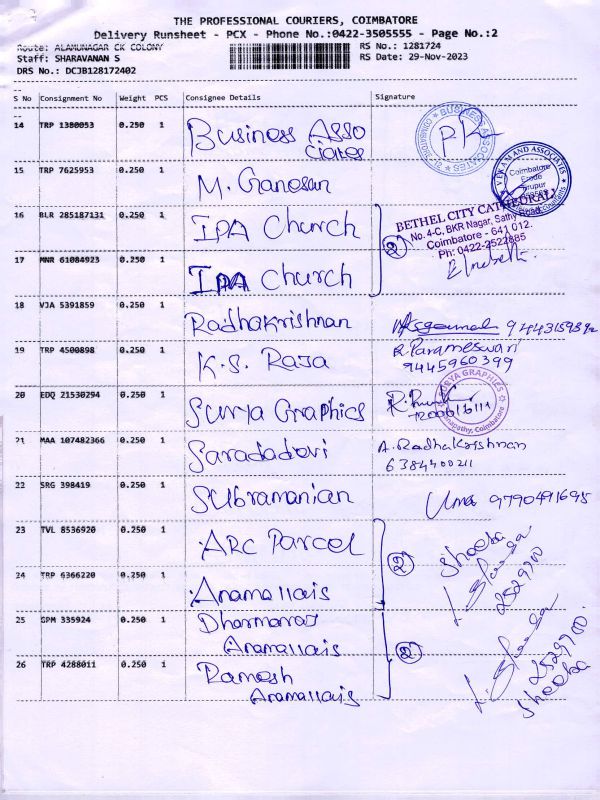 THE PROFESSIONAL COURIERS, COIMBATORE
Delivery Runsheet - PCX - Phone No.:0422-3505555 - Page No.:2
Route: ALAMUNAGAR CK COLONY
RS No.: 1281724
Staff: SHARAVANAN S
RS Date: 29-Nov-2023
DRS No.: DCJB128172402
S No Consignment No Weight PCS Consignee Details Signature
14 TRP 1380053 0.250 1 Business Asso
ciates
15 TRP 7625953 0.250 1 M. Ganesan
VEKAM AND ASSOCIATES
Coimbatore
Erode
16 BLR 285187131 0.250 1 IPA Church
BETHEL CITY CATHEDRAL
No. 4-C, BKR Nagar, Sathy Road,
Coimbatore - 641 012.
Ph: 0422-2522885
2
17 MNR 61084923 0.250 1 IPA Church
18 VJA 5391859 0.250 1 Radhakrishnan
19 TRP 4500898 0.250 1 K.S. Raja R. Parameswari
9445960399
20 EDQ 21530294 0.250 1 Surya Graphics
SURYA GRAPHICS
Coimbatore
21 MAA 107482366 0.250 1 Saradadevi A. Radhakrishnan
6384400211
22 SRG 398419 0.250 1 Subramanian Uma 9790491695
23 TVL 8536920 0.250 1 ARC Parcel Sheeba
2
2529700
24 TRP 6366220 0.250 1 Anamallais
25 GPM 335924 0.250 1 Dharmaraj
Anamallais
2
2529700
Sheeba
26 TRP 4288011 0.250 1 Ramesh
Anamallais